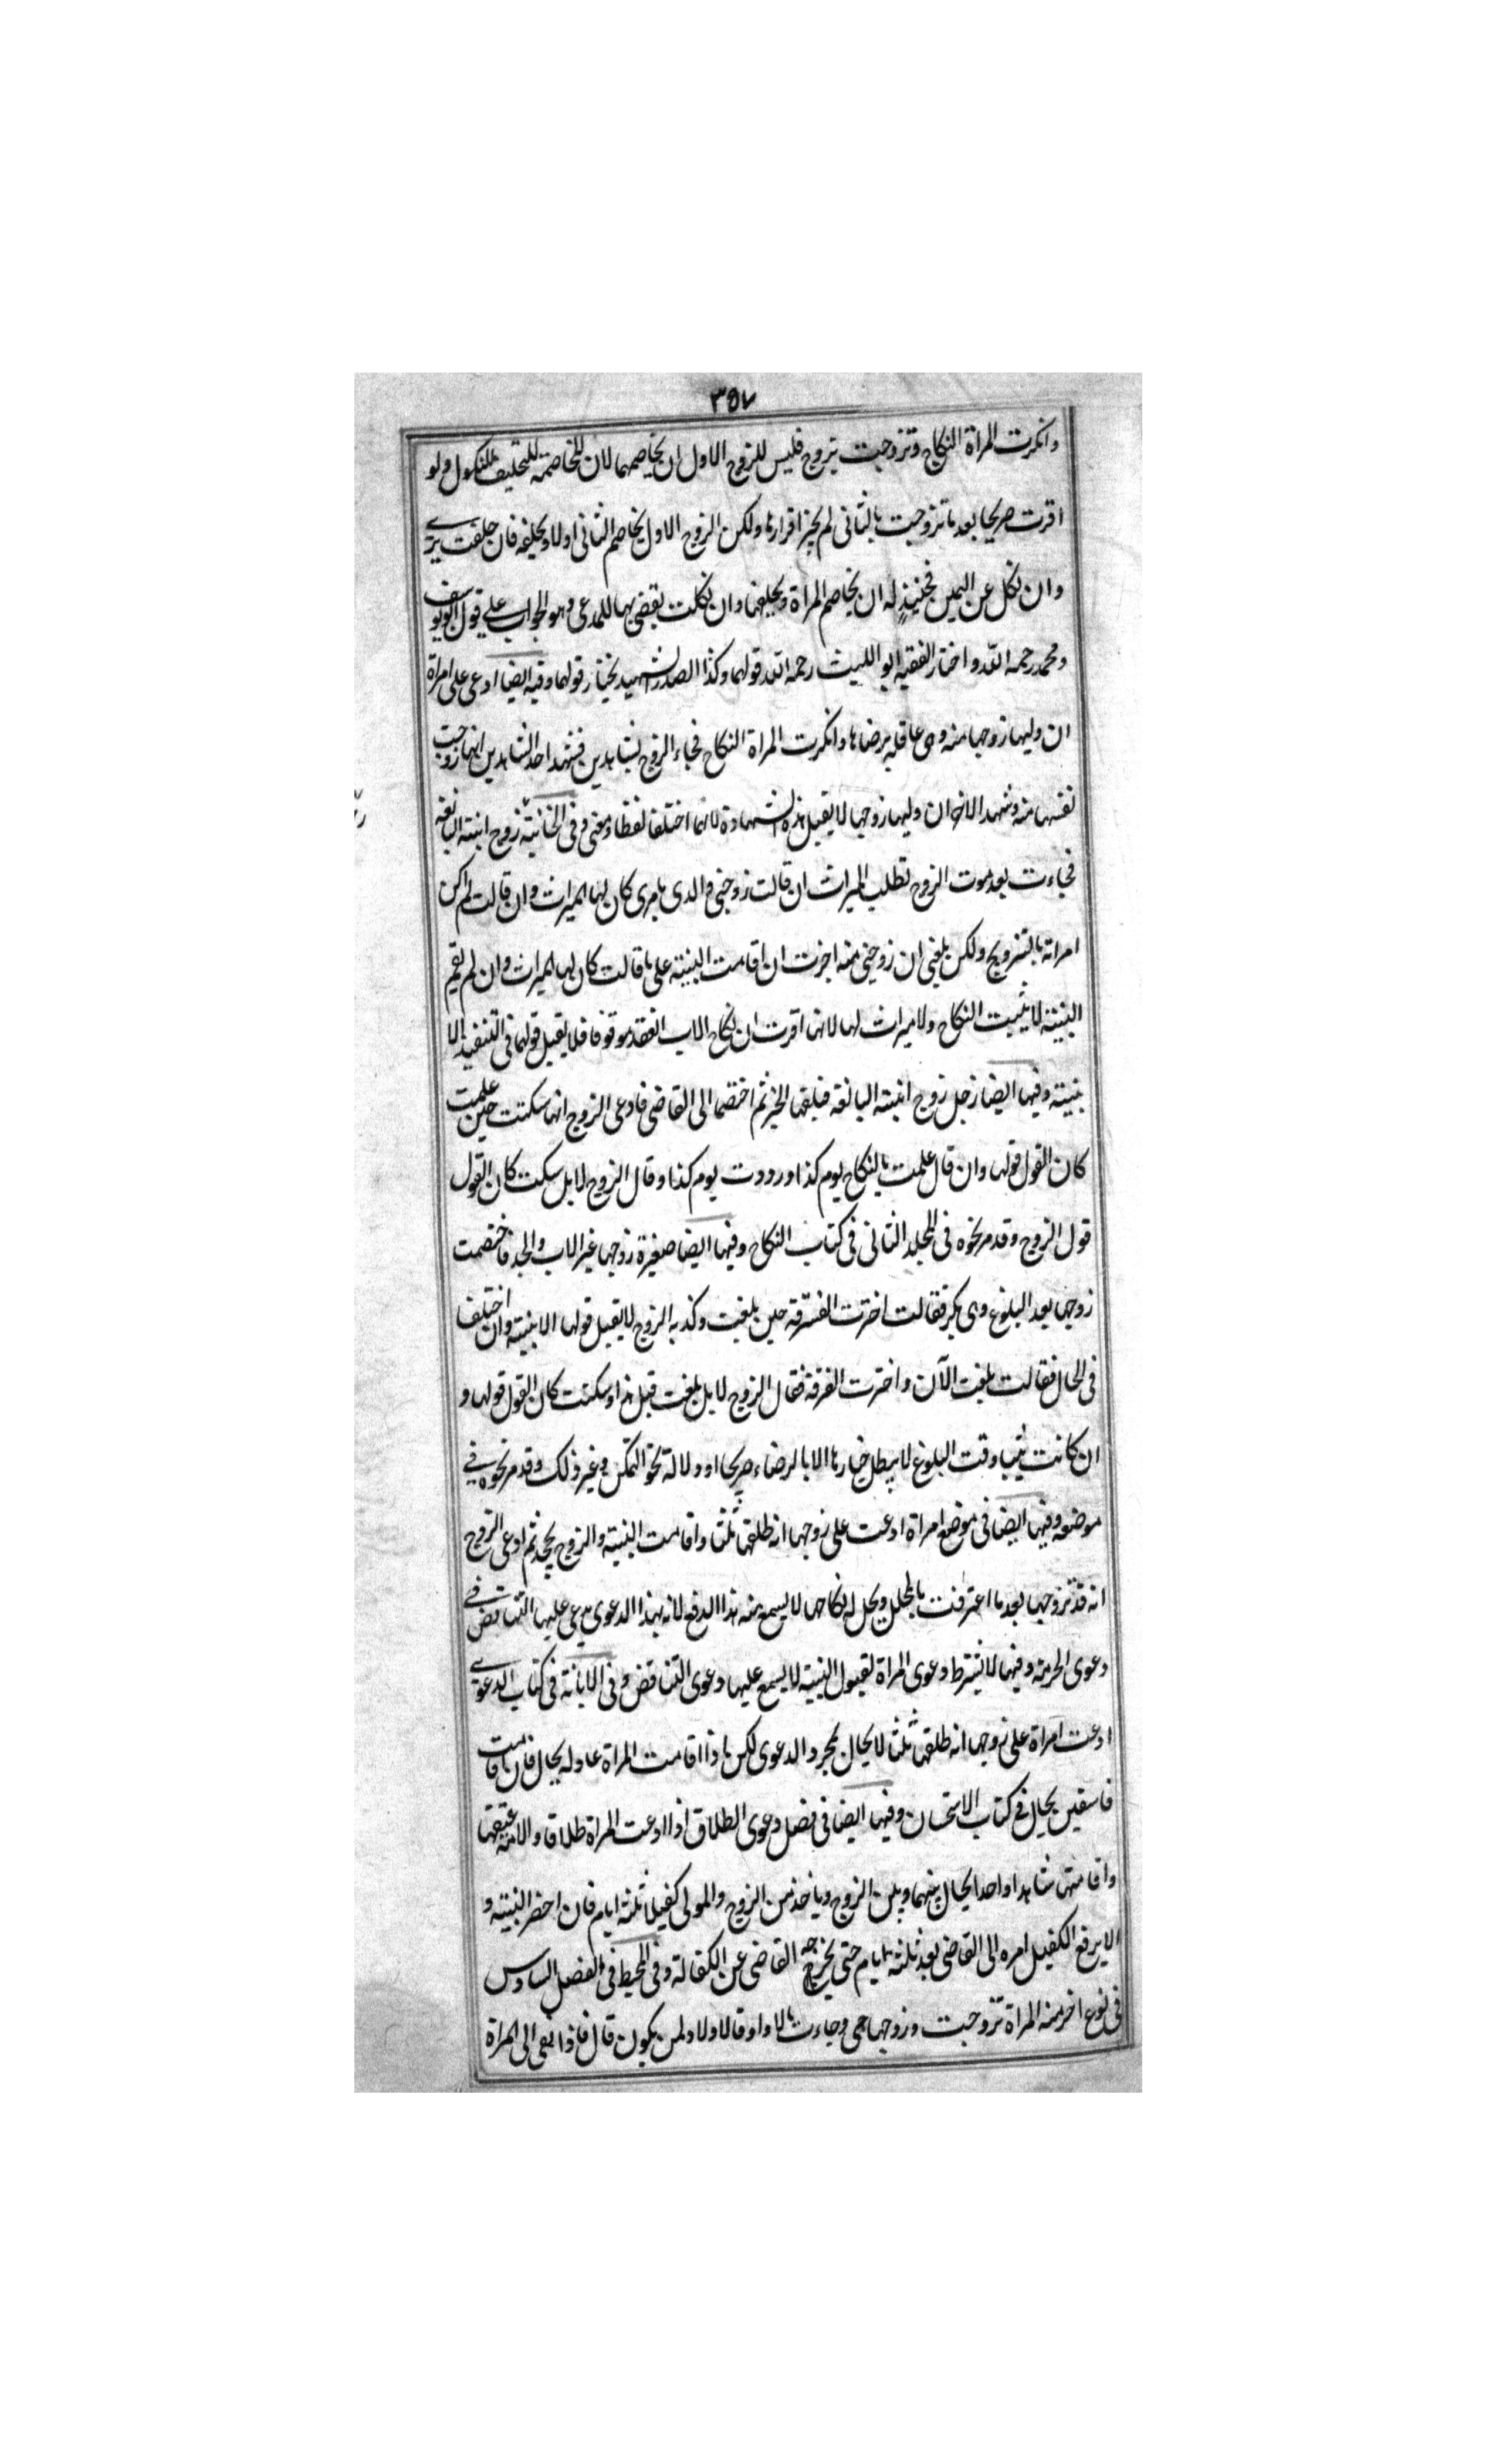 ٣٥٧
وانكرت المراة النكاح وتزوجت بزوج فليس للزوج الاول ان يخاصمهما لان المخاصمة للتحليف للنكول ولو
اقرت صريحا بعد ما تزوجت بالثانى لم يجز اقرارها ولكن الزوج الاول يخاصم الثانى اولا ويحلفه فان حلفت برى
وان نكل عن اليمين فحينئذٍ له ان يخاصم المراة ويحلفها وان نكلت يقضى بها للمدعى وهو الجواب على قول ابويوسف
ومحمد رحمه الله واختار الفقيه ابو الليث رحمه الله قولهما وكذا الصدر الشهيد يختار قولهما وفيه ايضا ادعى على امراة
ان وليها زوجها منه وهى عاقلة برضاها وانكرت المراة النكاح فجاء الزوج بشاهدين فشهد احد الشاهدين انها زوجت
نفسها منه وشهد الاخر ان وليها زوجها لا يقبل هذه الشهادة لانهما اختلفا لفظا ومعنى وفى الخانية زوج ابنته البالغة
فجاءت بعد موت الزوج تطلب الميراث ان قالت زوجنى والدى بامرى كان لها الميراث وان قالت لم اكن
امراته بالتزويج ولكن بلغنى ان زوجنى منه اجزت ان اقامت البينة على ما قالت كان لها الميراث وان لم تقم
البينة لا يثبت النكاح ولا ميراث لها لانها اقرت ان نكاح الاب انعقد موقوفا فلا يقبل قولها فى التنفيذ الا
ببينة وفيها ايضا رجل زوج ابنته البالغة فبلغها الخبر ثم اختصما الى القاضى فادعى الزوج انها سكتت حين علمت
كان القول قولها وان قال علمت بالنكاح يوم كذا ورددت يوم كذا وقال الزوج لا بل سكت كان القول
قول الزوج وقد مر نحوه فى المجلد الثانى فى كتاب النكاح وفيها ايضا صغيرة زوجها غير الاب والجد فاختصمت
زوجها بعد البلوغ وهى بكر فقالت اخترت الفسرقة حين بلغت وكذبه الزوج لا يقبل قولها الا ببينة وان اختلف
فى الحال فقالت بلغت الآن واخترت الفرقة فقال الزوج لا بل بلغت قبل هذا وسكتت كان القول قولها و
ان كانت ثيبا وقت البلوغ لا يبطل خيارها الا بالرضاء صريحا او دلالة نحو التمكن وغير ذلك وقد مر نحوه فى
موضعه وفيها ايضا فى موضع امراة ادعت على زوجها انه طلقها ثلثا واقامت البينة والزوج يجحد ثم ادعى الزوج
انه قد تزوجها بعد ما اعترفت بالمحلل ويحل له نكاحها لا يسمع منه هذا الدفع لانه بهذا الدعوى يدعى عليها التناقض فى
دعوى الحرمة وفيها لا يشترط دعوى المراة لقبول البينة لا يسمع عليها دعوى التناقض وفى الابانة فى كتاب الدعوى
ادعت امراة على زوجها انه طلقها ثلثا لا يحال بمجرد الدعوى لكن اذا اقامت المراة عادله يحال فان اقامت
فاسقين يحال فى كتاب الاستحسان وفيها ايضا فى فصل دعوى الطلاق اذا ادعت المراة طلاقا والامة عتقها
واقامتها شاهدا واحدا يحال بينهما وبين الزوج وياخذ من الزوج والمولى كفيلا ثلثة ايام فان احضر البينة و
الا يرفع الكفيل امره الى القاضى بعد ثلثة ايام حتى يخرجه القاضى عن الكفالة وفى المحيط فى الفصل السادس
فى نوع اخر منه المراة تزوجت وزوجها حى وجاءت بالاولاد قال اولاد لمن يكون قال فاذا نفى الى المراة